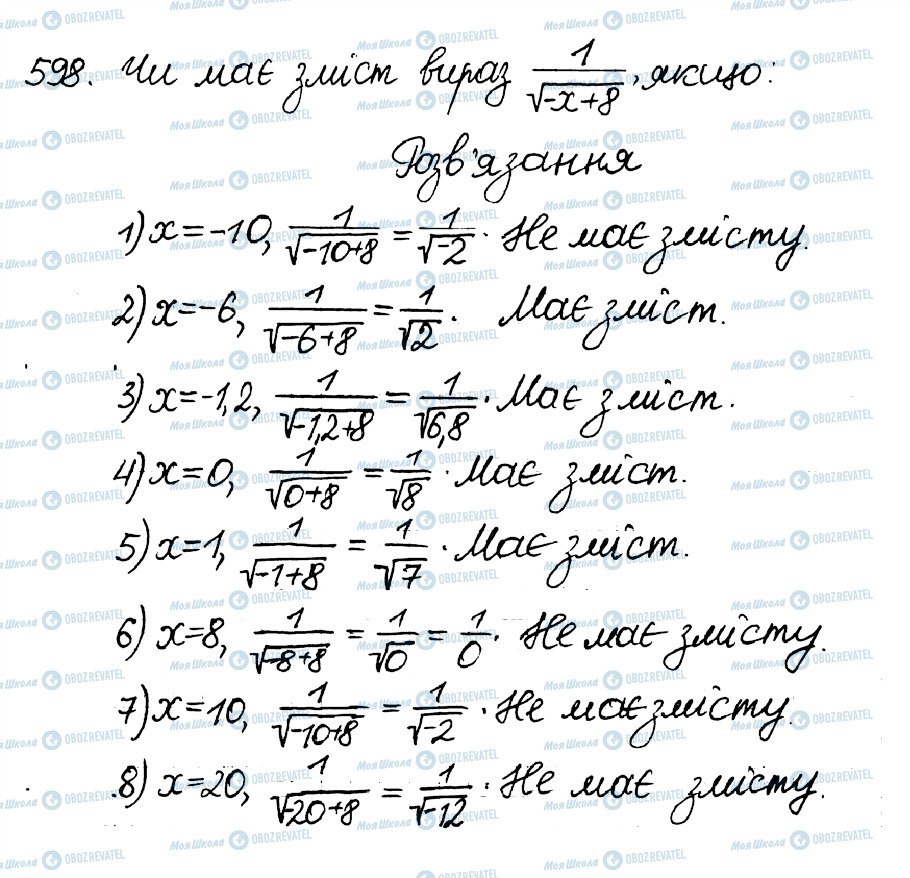 598. Чи має зміст вираз 1/√(-x+8), якщо:
Розв'язання
1) x=-10, 1/√(-10+8) = 1/√(-2). Не має змісту.
2) x=-6, 1/√(-6+8) = 1/√2. Має зміст.
3) x=-1,2, 1/√(-1,2+8) = 1/√6,8. Має зміст.
4) x=0, 1/√(0+8) = 1/√8. Має зміст.
5) x=1, 1/√(-1+8) = 1/√7. Має зміст.
6) x=8, 1/√(-8+8) = 1/√0 = 1/0. Не має змісту.
7) x=10, 1/√(-10+8) = 1/√(-2). Не має змісту.
8) x=20, 1/√(20+8) = 1/√(-12). Не має змісту.
Моя Школа OBOZREVATEL